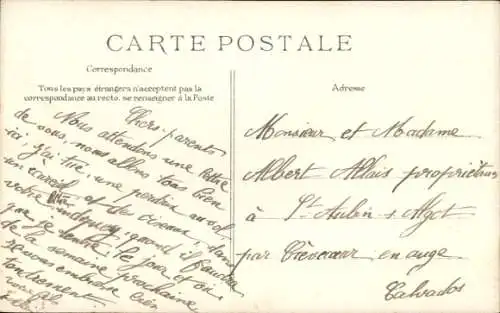 CARTE POSTALE
Correspondance
Tous les pays étrangers n'acceptent pas la
correspondance au recto. se renseigner à la Poste
Adresse
Chers parents
Nous attendons une lettre
de vous, nous allons tous bien
ici, j'ai tué, une perdrix au vol
un et des oiseaux, dans
votre quand il faudra
que je rentre, le jour et ou,
de la semaine prochaine
recevez
tendrement
votre
Monsieur et Madame
Albert Allais propriétaire
à St Aubin s Algot
par Crèvecoeur en auge
Calvados